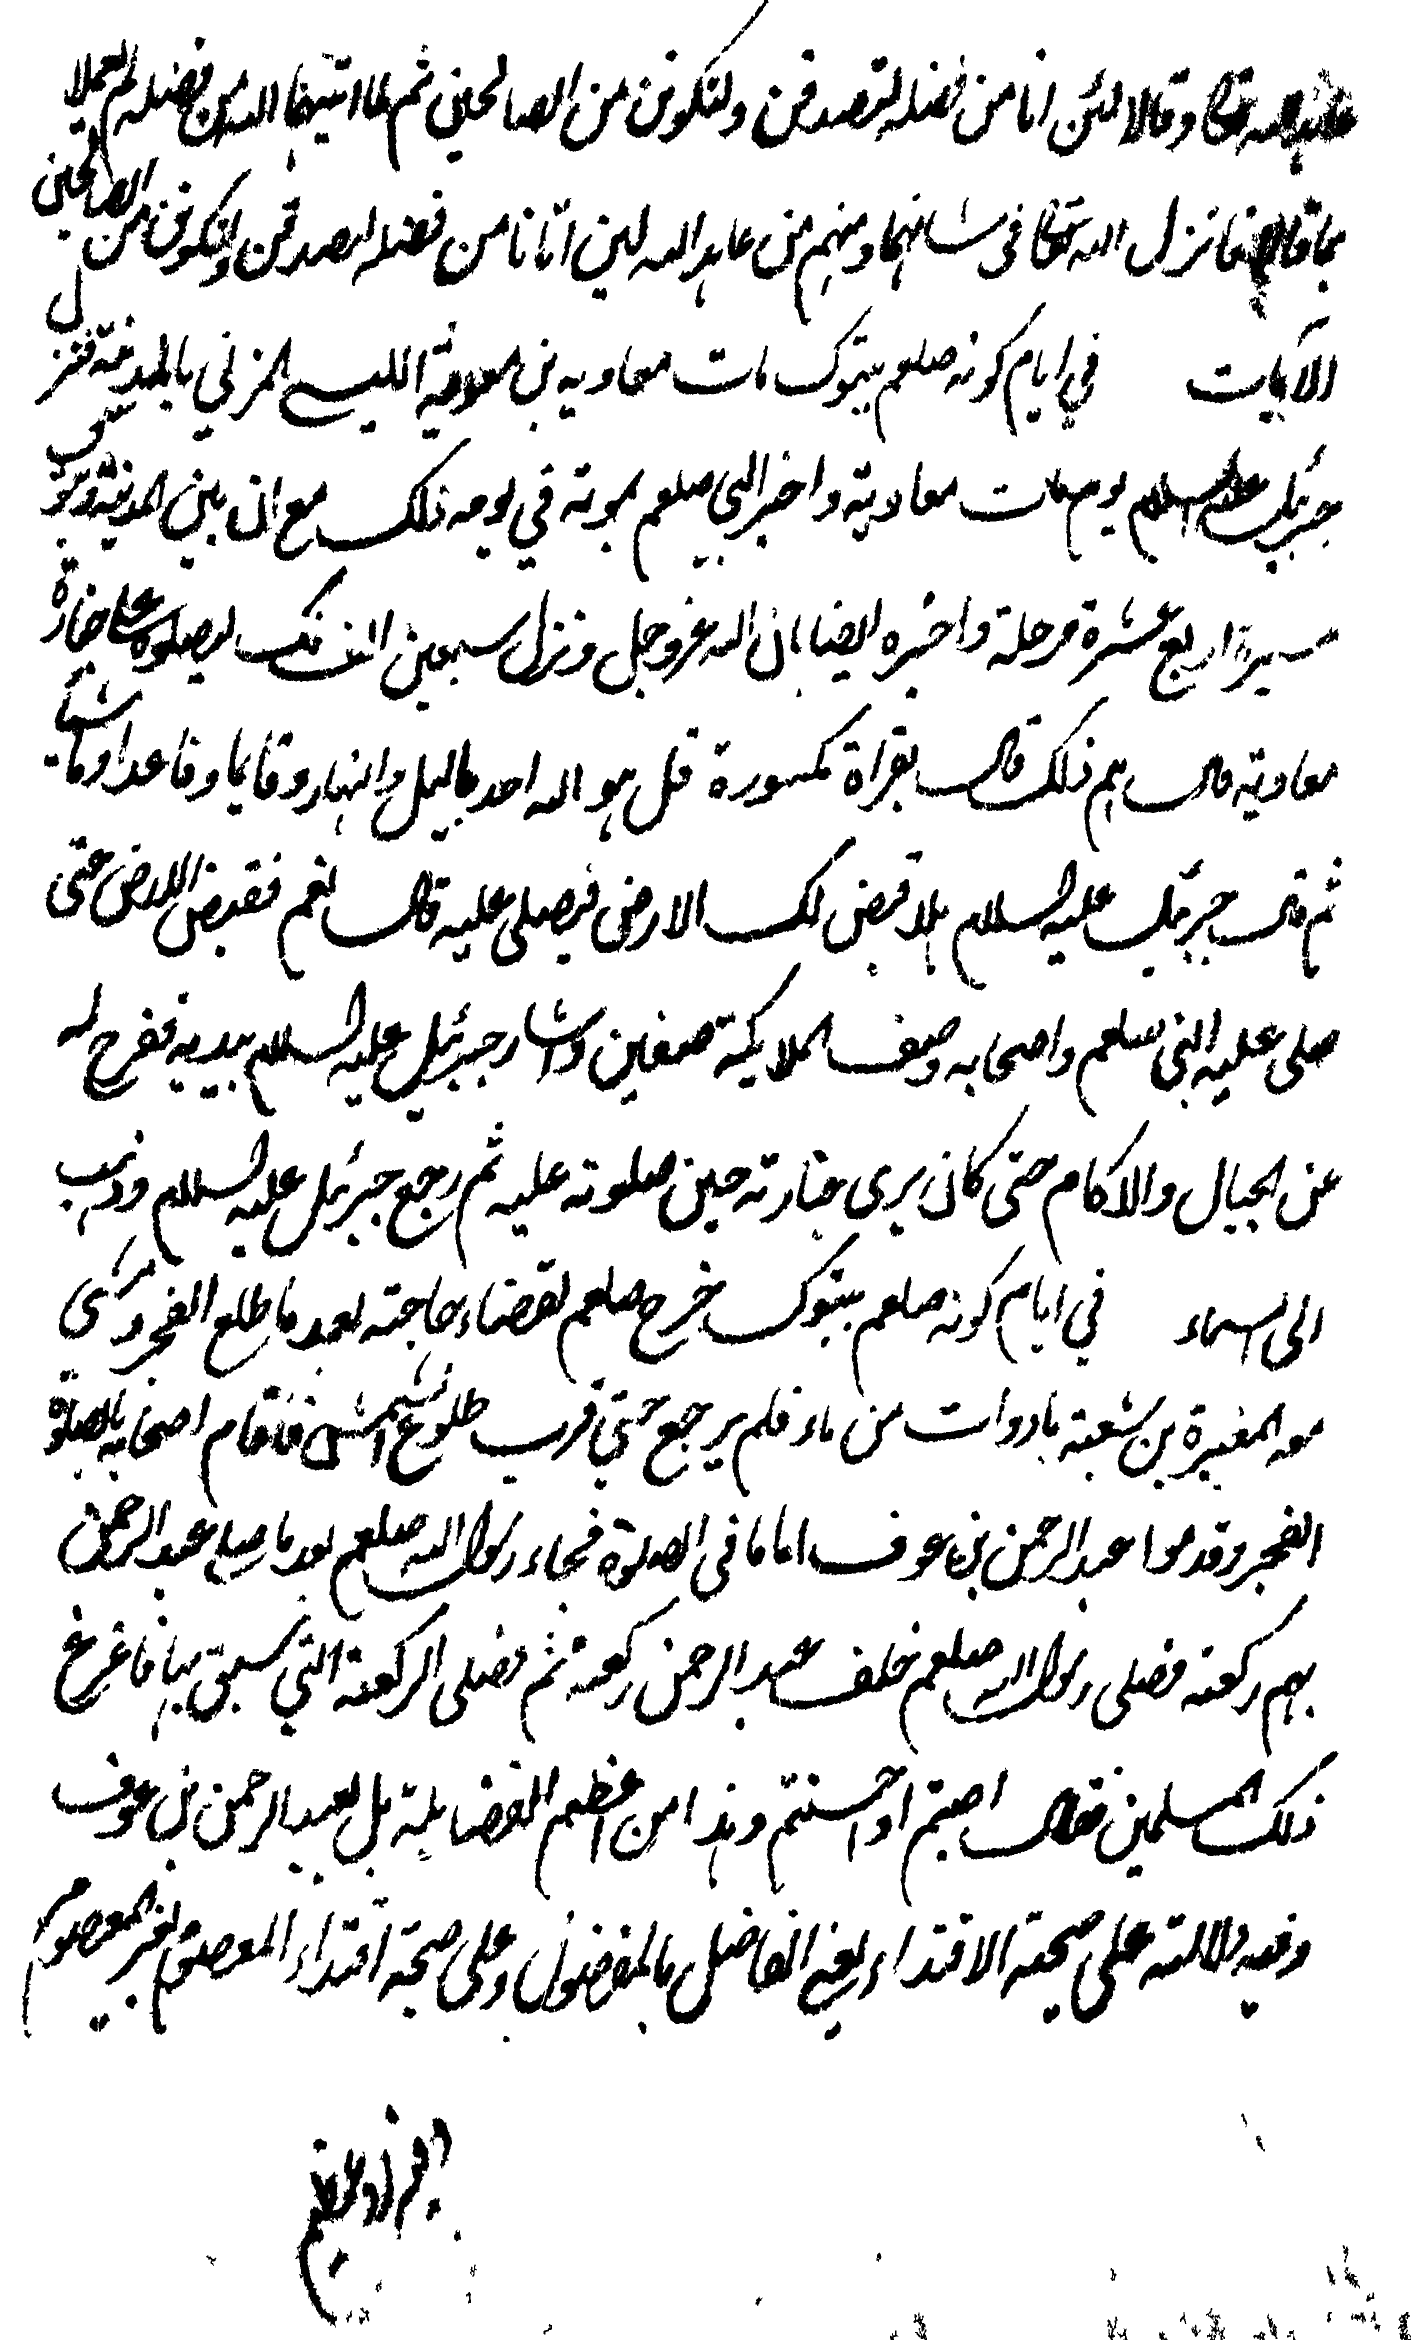 عاهد الله تعالى وقالا لئن اتانا من فضله لنصدقن ولنكونن من الصالحين ثم لما اتيهما الله من فضله لم يعملا
بما قالا فانزل الله تعالى في شانهما ومنهم من عاهد الله لئن اتانا من فضله لنصدقن ولنكونن من الصالحين
الآيات في ايام كونه صلعم بتبوك مات معاويه بن معوية الليثي المزني بالمدينة فنزل
جبرئيل عليه السلام يوم مات معاوية واخبر النبي صلعم بموته في يومه ذلك مع ان بين المدينة وتبوك
مسيرة اربع عشرة مرحلة واخبره ايضا بان الله عز وجل ونزل سبعين الف ملك ليصلوا على جنازة
معاوية قال بم ذلك قال بقراة سورة قل هو الله احد بالليل والنهار وقايما وقاعدا وماشيا
ثم قال جبرئيل عليه السلام هلا قبض لك الارض فيصلى عليه قال نعم فقبض الارض حتى
صلى عليه النبي صلعم واصحابه وصف الملايكة صفين واشار جبرئيل عليه السلام بيديه ففرج له
عن الجبال والاكام حتى كان يرى جنازته حين صلوته عليه ثم رجع جبرئيل عليه السلام وذهب
الى السماء في ايام كونه صلعم بتبوك خرج صلعم لقضاء حاجته بعد ما طلع الفجر ومشى
معه المغيرة بن شعبة بادوات من ماء فلم يرجع حتى قرب طلوع الشمس فاقام اصحابه بالصلوة
الفجر وقدموا عبد الرحمن بن عوف اماما في الصلوة فجاء رسول الله صلعم بعد ما صلى عبد الرحمن
بهم ركعة فصلى رسول الله صلعم خلف عبد الرحمن ركعة ثم فصلى الركعة التي سبق بها فافزع
ذلك المسلمين فقال اصبتم او احسنتم وهذا من اعظم الفضايلة بل لعبد الرحمن بن عوف
وفيه دلالة على صحة الاقتداء يعني الفاضل بالمفضول وعلى صحة اقتداء المعصوم لغير المعصوم